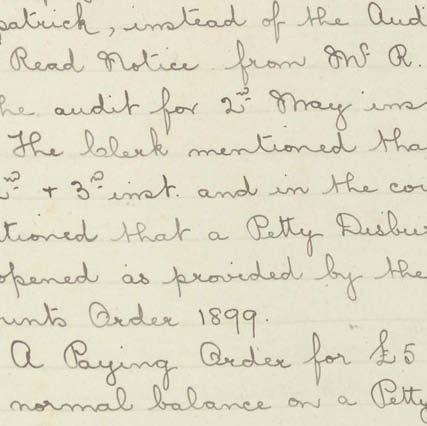 patrick, instead of the Aud
Read Notice from Mr R.
he audit for 2nd May ins
The Clerk mentioned tha
2nd + 3rd inst. and in the cou
tioned that a Petty Disbur
opened as provided by the
unts Order 1899.
A Paying Order for £5
normal balance on a Petty